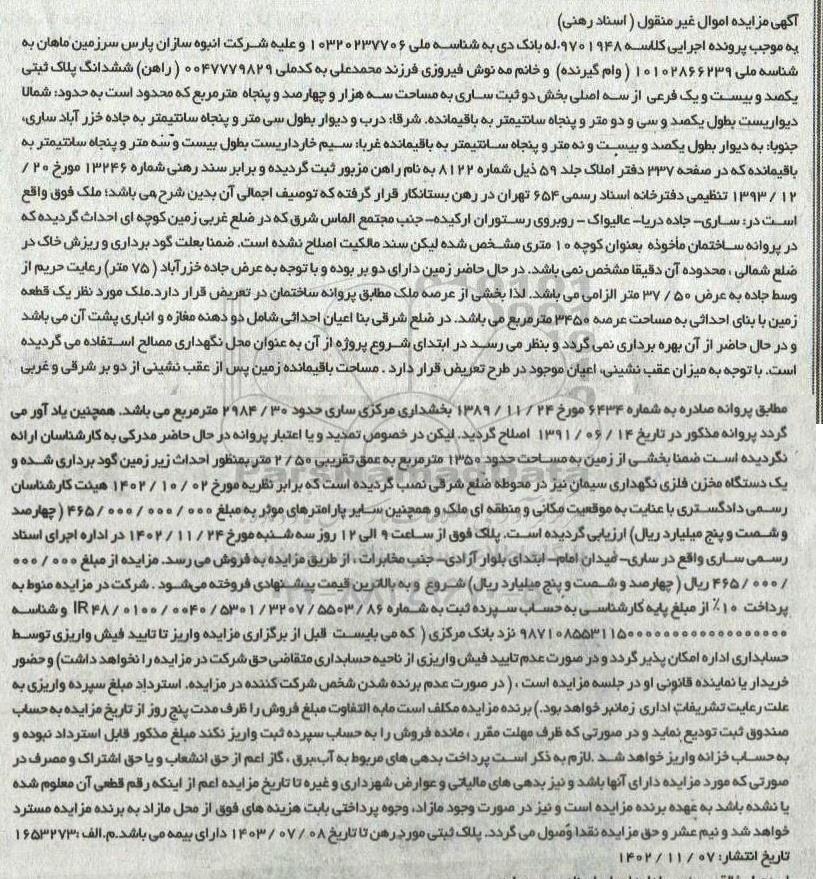 آگهی مزایده اموال غیر منقول ( اسناد رهنی)
به موجب پرونده اجرایی کلاسه ۹۷۰۱۹۴۸،له بانک دی به شناسه ملی ۱۰۳۲۰۲۳۷۷۰۶ و علیه شرکت انبوه سازان پارس سرزمین ماهان به
شناسه ملی ۱۰۱۰۲۸۶۶۲۳۹ ( وام گیرنده) و خانم مه نوش فیروزی فرزند محمدعلی به کدملی ۰۰۴۷۷۷۹۸۲۹ ( راهن) ششدانگ پلاک ثبتی
یکصد و بیست و یک فرعی از سه اصلی بخش دو ثبت ساری به مساحت سه هزار و چهارصد و پنجاه مترمربع که محدود است به حدود: شمالا
دیواریست بطول یکصد و سی و دو متر و پنجاه سانتیمتر به باقیمانده. شرقا: درب و دیوار بطول سی متر و پنجاه سانتیمتر به جاده خزر آباد ساری،
جنوبا: به دیوار بطول یکصد و بیست و نه متر و پنجاه سانتیمتر به باقیمانده غربا: سیم خارداریست بطول بیست و سه متر و پنجاه سانتیمتر به
باقیمانده که در صفحه ۳۳۷ دفتر املاک جلد ۵۹ ذیل شماره ۸۱۲۲ به نام راهن مزبور ثبت گردیده و برابر سند رهنی شماره ۱۳۲۴۶ مورخ ۲۰ /
۱۲ / ۱۳۹۳ تنظیمی دفترخانه اسناد رسمی ۶۵۴ تهران در رهن بستانکار قرار گرفته که توصیف اجمالی آن بدین شرح می باشد: ملک فوق واقع
است در: ساری- جاده دریا- عالیواک - روبروی رستوران ارکیده- جنب مجتمع الماس شرق که در ضلع غربی زمین کوچه ای احداث گردیده که
در پروانه ساختمان مأخوذه بعنوان کوچه ۱۰ متری مشخص شده لیکن سند مالکیت اصلاح نشده است. ضمنا بعلت گود برداری و ریزش خاک در
ضلع شمالی ، محدوده آن دقیقا مشخص نمی باشد. در حال حاضر زمین دارای دو بر بوده و با توجه به عرض جاده خزرآباد ( ۷۵ متر) رعایت حریم از
وسط جاده به عرض ۵۰ / ۳۷ متر الزامی می باشد. لذا بخشی از عرصه ملک مطابق پروانه ساختمان در تعریض قرار دارد.ملک مورد نظر یک قطعه
زمین با بنای احداثی به مساحت عرصه ۳۴۵۰ مترمربع می باشد. در ضلع شرقی بنا اعیان احداثی شامل دو دهنه مغازه و انباری پشت آن می باشد
و در حال حاضر از آن بهره برداری نمی گردد و بنظر می رسد در ابتدای شروع پروژه از آن به عنوان محل نگهداری مصالح استفاده می گردیده
است. با توجه به میزان عقب نشینی، اعیان موجود در طرح تعریض قرار دارد . مساحت باقیمانده زمین پس از عقب نشینی از دو بر شرقی و غربی
مطابق پروانه صادره به شماره ۶۴۳۴ مورخ ۲۴ / ۱۱ / ۱۳۸۹ بخشداری مرکزی ساری حدود ۳۰ / ۲۹۸۴ مترمربع می باشد. همچنین یاد آور می
گردد پروانه مذکور در تاریخ ۱۴ / ۰۶ / ۱۳۹۱ اصلاح گردید. لیکن در خصوص تمدید و یا اعتبار پروانه در حال حاضر مدرکی به کارشناسان ارائه
نگردیده است ضمنا بخشی از زمین به مساحت حدود ۱۳۵۰ مترمربع به عمق تقریبی ۵۰ / ۲ متر بمنظور احداث زیر زمین گود برداری شده و
یک دستگاه مخزن فلزی نگهداری سیمان نیز در محوطه ضلع شرقی نصب گردیده است که برابر نظریه مورخ ۰۲ / ۱۰ / ۱۴۰۲ هیئت کارشناسان
رسمی دادگستری با عنایت به موقعیت مکانی و منطقه ای ملک و همچنین سایر پارامترهای موثر به مبلغ ۰۰۰ / ۰۰۰ / ۰۰۰ / ۴۶۵ ( چهارصد
و شصت و پنج میلیارد ریال) ارزیابی گردیده است. پلاک فوق از ساعت ۹ الی ۱۲ روز سه شنبه مورخ ۲۴ / ۱۱ / ۱۴۰۲ در اداره اجرای اسناد
رسمی ساری واقع در ساری- میدان امام- ابتدای بلوار آزادی- جنب مخابرات ، از طریق مزایده به فروش می رسد. مزایده از مبلغ ۰۰۰ / ۰۰۰
/ ۰۰۰ / ۴۶۵ ریال ( چهارصد و شصت و پنج میلیارد ریال) شروع و به بالاترین قیمت پیشنهادی فروخته می‌شود . شرکت در مزایده منوط به
پرداخت ۱۰٪ از مبلغ پایه کارشناسی به حساب سپرده ثبت به شماره ۸۶ / ۵۵۰۳ / ۳۲۰۷ / ۵۳۰۱ / ۰۰۴۰ / ۰۱۰۰ / ۴۸ IR و شناسه
نزد بانک مرکزی ( که می بایست قبل از برگزاری مزایده واریز تا تایید فیش واریزی توسط
حسابداری اداره امکان پذیر گردد و در صورت عدم تایید فیش واریزی از ناحیه حسابداری متقاضی حق شرکت در مزایده را نخواهد داشت) و حضور
خریدار یا نماینده قانونی او در جلسه مزایده است ، ( در صورت عدم برنده شدن شخص شرکت کننده در مزایده، استرداد مبلغ سپرده واریزی به
علت رعایت تشریفات اداری زمانبر خواهد بود.) برنده مزایده مکلف است مابه التفاوت مبلغ فروش را ظرف مدت پنج روز از تاریخ مزایده به حساب
صندوق ثبت تودیع نماید و در صورتی که ظرف مهلت مقرر ، مانده فروش را به حساب سپرده ثبت واریز نکند مبلغ مذکور قابل استرداد نبوده و
به حساب خزانه واریز خواهد شد .لازم به ذکر است پرداخت بدهی های مربوط به آب،برق ، گاز اعم از حق انشعاب و یا حق اشتراک و مصرف در
صورتی که مورد مزایده دارای آنها باشد و نیز بدهی های مالیاتی و عوارض شهرداری و غیره تا تاریخ مزایده اعم از اینکه رقم قطعی آن معلوم شده
یا نشده باشد به عهده برنده مزایده است و نیز در صورت وجود مازاد، وجوه پرداختی بابت هزینه های فوق از محل مازاد به برنده مزایده مسترد
خواهد شد و نیم عشر و حق مزایده نقدا وصول می گردد. پلاک ثبتی مورد رهن تا تاریخ ۰۸ / ۰۷ / ۱۴۰۳ دارای بیمه می باشد.م.الف :۱۶۵۳۲۷۳
تاریخ انتشار: ۰۷ / ۱۱ / ۱۴۰۲